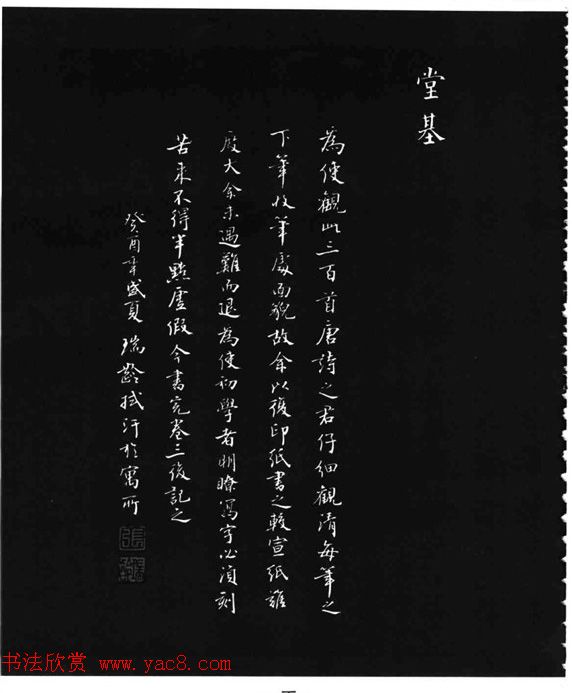 堂基
為使觀此三百首唐詩之君仔細觀清每筆之
下筆收筆處面貌故余以復印紙書之較宣紙難
度大余未遇難而退為使初學者明瞭寫字必須刻
苦來不得半點虛假今書完卷三後記之
癸酉年盛夏瑞齡拭汗於寓所
书法欣赏 www.yac8.com